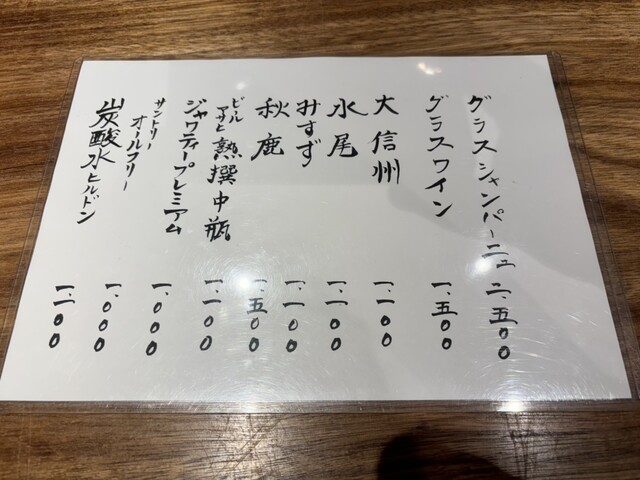 グラスシャンパーニュ 二.五〇〇
グラスワイン 一.五〇〇
大信州 一.一〇〇
水尾 一.一〇〇
みすず 一.一〇〇
秋鹿 一.五〇〇
ビル アサヒ 熟撰中瓶 一.一〇〇
ジャワティープレミアム 一.〇〇〇
サントリー オールフリー 一.〇〇〇
炭酸水 ヒルドン 一.一〇〇